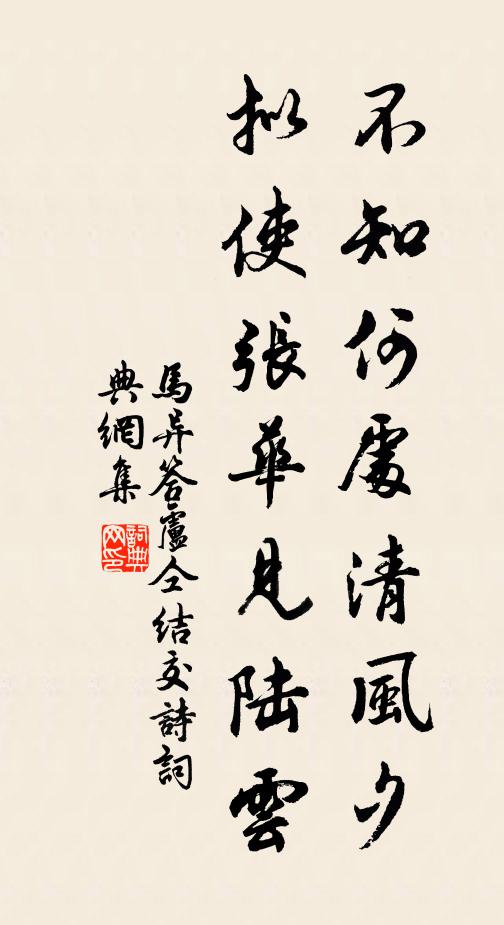 不知何處清風夕
拟使張華見陸雲
馬异答盧仝結交詩詞
典網集
詞典網印